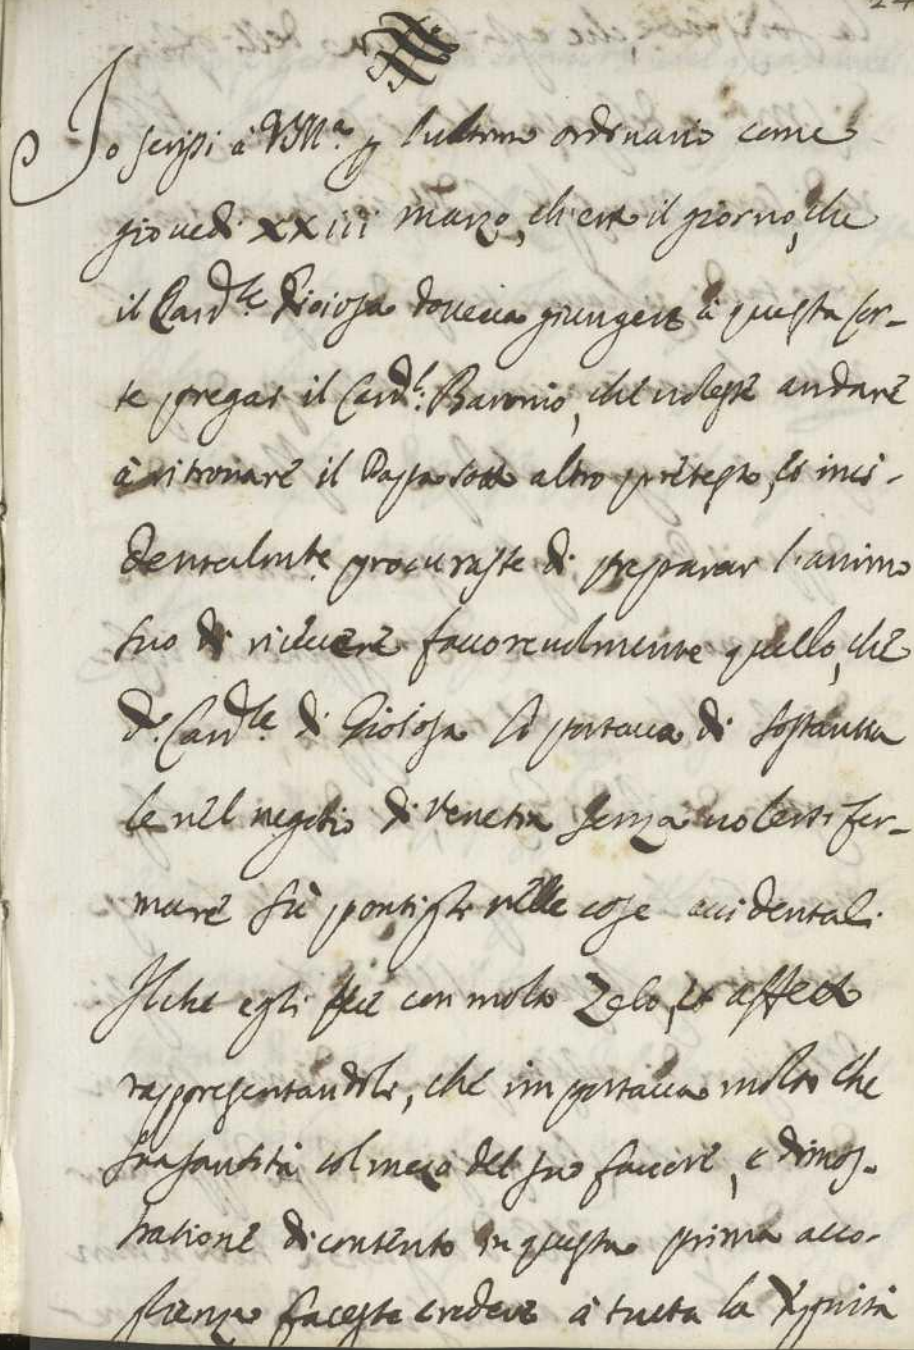 Io scrissi à V. M.ta p l'ultimo ordinario come
giovedi xxiii marzo, ch'era il giorno, che
il Card.le Gioiosa doveva giungere à questa Cor-
te pregai il Card.l Baronio, che volesse andare
à ritrovare il Papa sotto altro pretesto, et inci-
dentalmte procurasse di preparar l'animo
suo di ricevere favorevolmente quello, che
d.o Card.le di Gioiosa li portava di sostantia
le nel negotio di Venetia senza volersi fer-
mare sù pontigli nelle cose accidentali.
Ilche egli fece con molto Zelo, et affetto
rappresentandoli, che importava molto che
sua santità col mezo del suo favore, e dimos-
tratione di contento in questa prima acco-
glienza facesse credere à tutta la